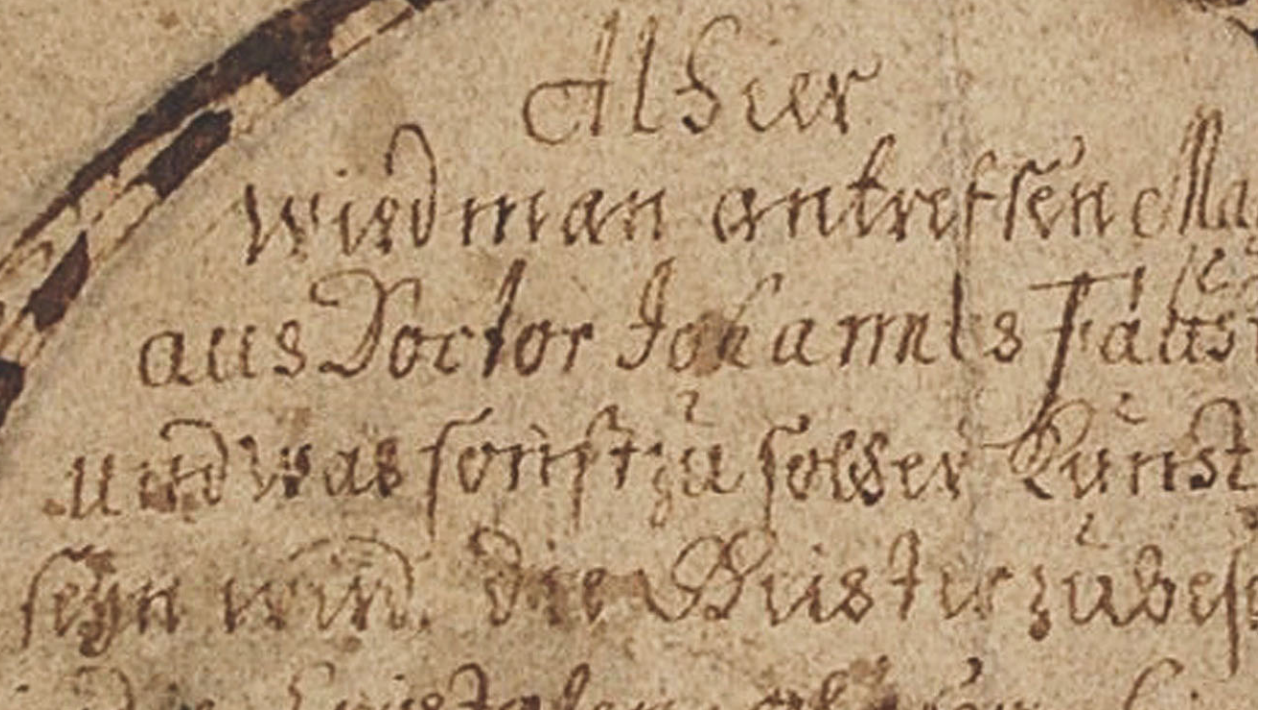 Alhier
wird man antreffen
aus Doctor Johannes Faust
und was sonst zu solcher Kunst
seyn wird. die Geister zu